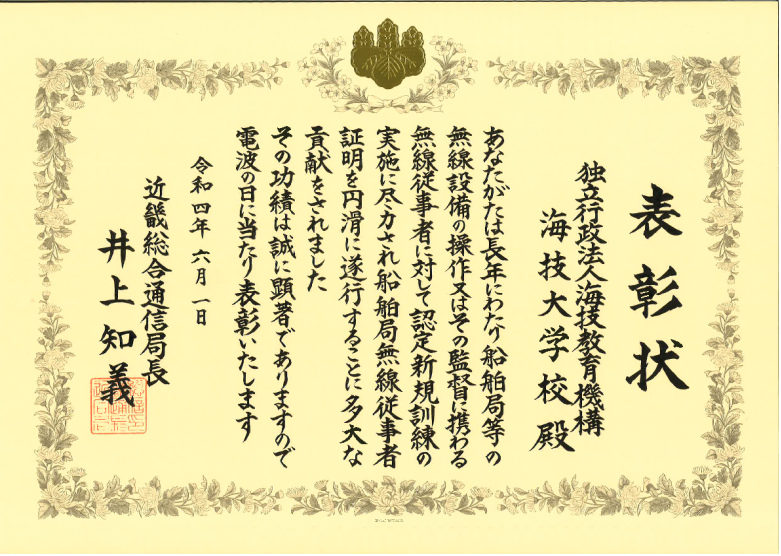 表彰状
独立行政法人海技教育機構
海技大学校殿
あなたがたは長年にわたり船舶局等の
無線設備の操作又はその監督に携わる
無線従事者に対して認定新規訓練の
実施に尽力され船舶局無線従事者
証明を円滑に遂行することに多大な
貢献をされました
その功績は誠に顕著でありますので
電波の日に当たり表彰いたします
令和四年六月一日
近畿総合通信局長
井上知義